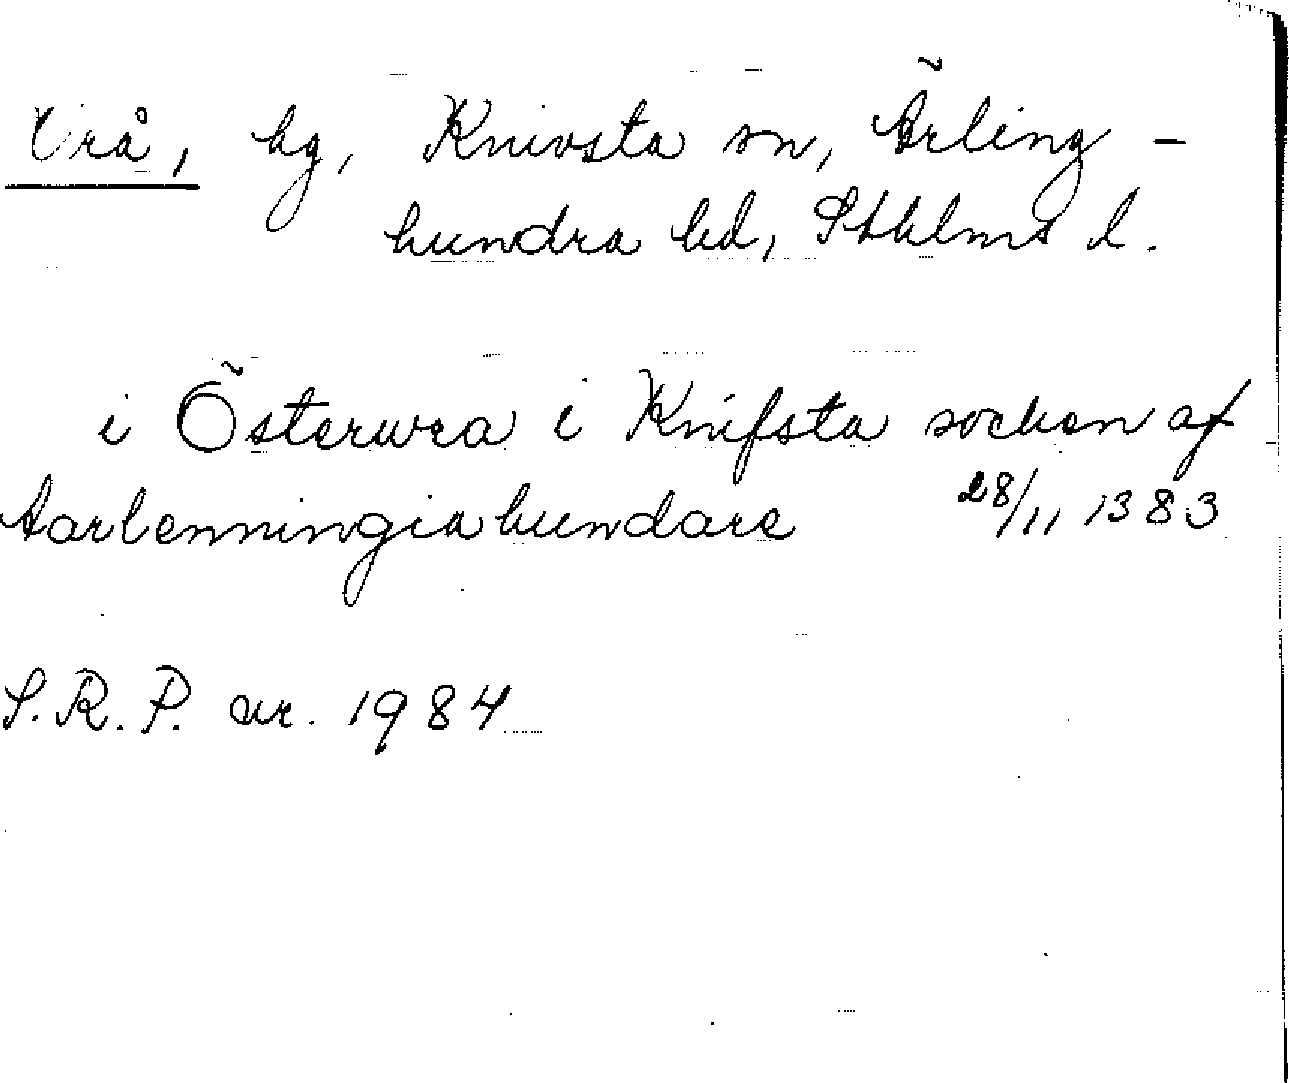 Vrå, by, Knivsta sn, Ärling-
hundra hd, Sthlms l.
i Österwra i Knifsta socken af
Aarlenningia hundare 28/11 1383
S.R.P. nr. 1984